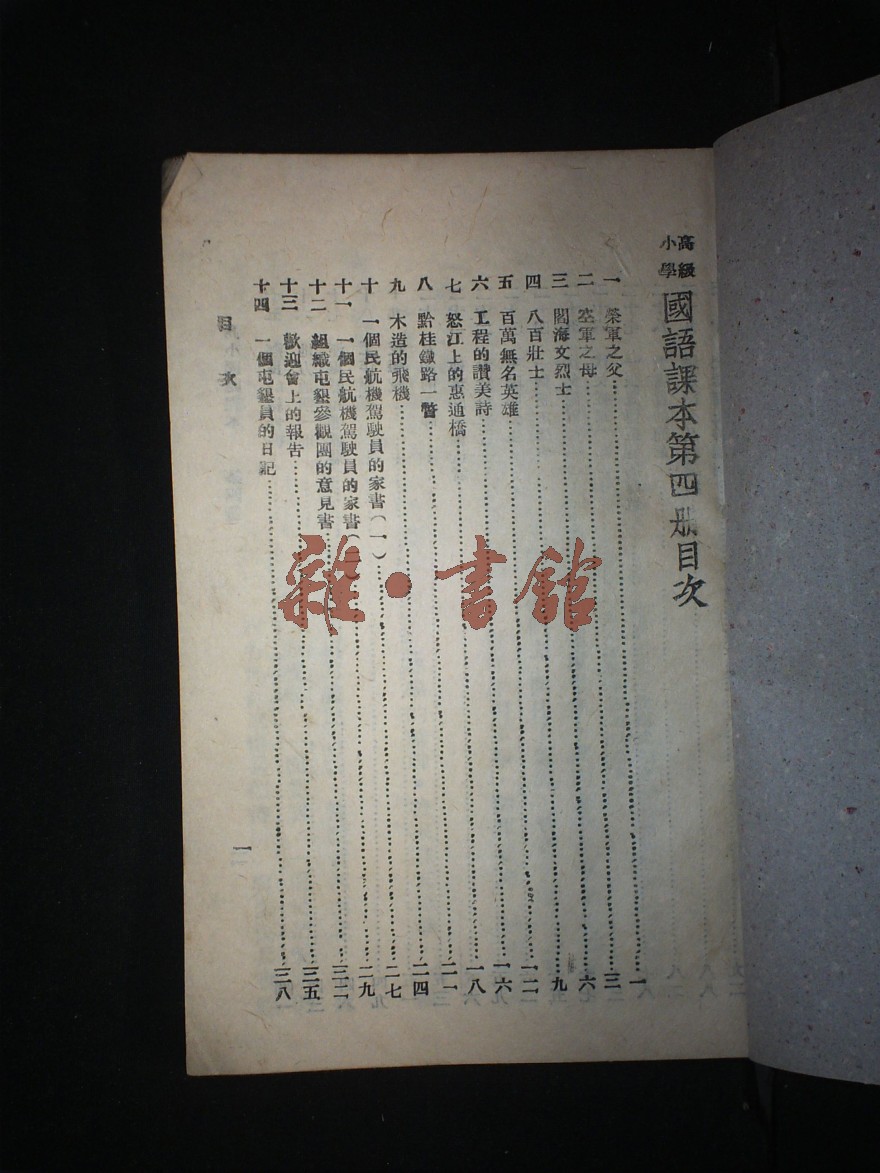 高級小學國語課本第四册目次
一 榮軍之父……一
二 空軍之母……三
三 閻海文烈士……六
四 八百壯士……九
五 百萬無名英雄……一二
六 工程的讚美詩……一六
七 怒江上的惠通橋……一八
八 黔桂鐵路一瞥……二一
九 木造的飛機……二四
十 一個民航機駕駛員的家書(一)……二七
十一 一個民航機駕駛員的家書(二)……二九
十二 組織屯墾參觀團的意見書……三二
十三 歡迎會上的報告……三五
十四 一個屯墾員的日記……三八
目次
一
雜·書館